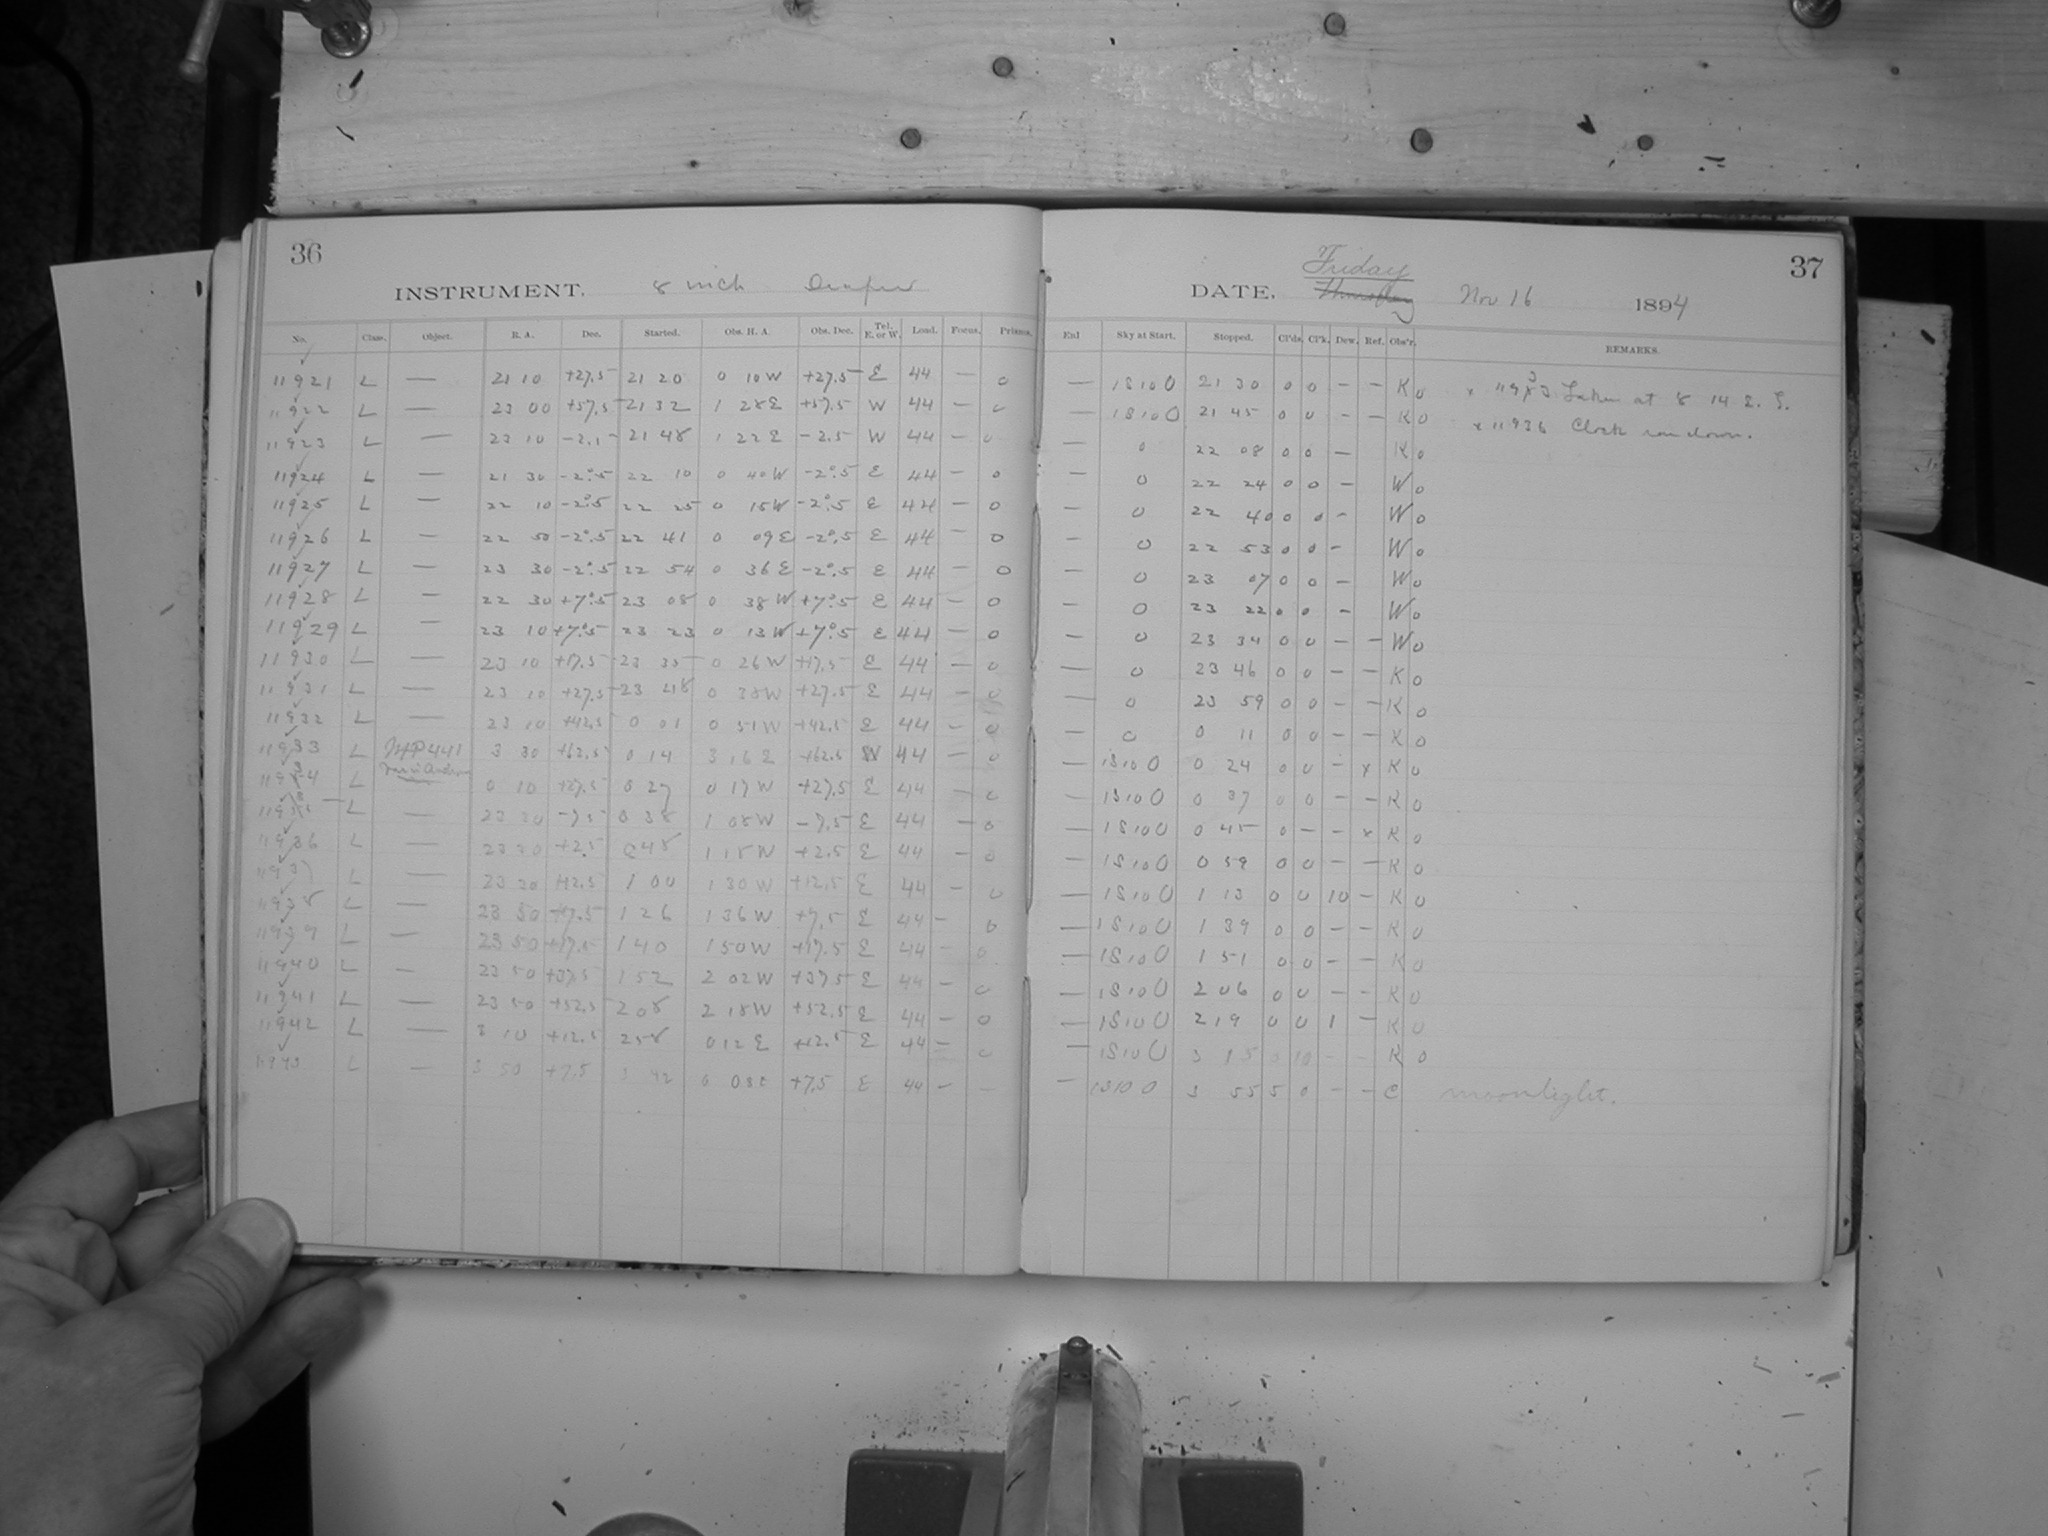 36
INSTRUMENT. 8 inch Draper
No. Class. Object. R. A. Dec. Started. Obs. H. A. Obs. Dec. Tel. E. or W. Load. Focus. Prisms.
11921 L — 21 10 +27.5 21 20 0 10W +27.5 E 44 — 0
11922 L — 23 00 +57.5 21 32 1 28E +57.5 W 44 — 0
11923 L — 23 10 -2.5 21 48 1 22E -2.5 W 44 — 0
11924 L — 21 30 -2°.5 22 10 0 40W -2°.5 E 44 — 0
11925 L — 22 10 -2°.5 22 25 0 15W -2°.5 E 44 — 0
11926 L — 22 50 -2°.5 22 41 0 09E -2°.5 E 44 — 0
11927 L — 23 30 -2°.5 22 54 0 36E -2°.5 E 44 — 0
11928 L — 22 30 +7°.5 23 08 0 38W +7°.5 E 44 — 0
11929 L — 23 10 +7°.5 23 23 0 13W +7°.5 E 44 — 0
11930 L — 23 10 +17.5 23 35 0 26W +17.5 E 44 — 0
11931 L — 23 10 +27.5 23 48 0 38W +27.5 E 44 — 0
11932 L — 23 10 +42.5 0 01 0 51W +42.5 E 44 — 0
11933 L 441 3 30 +62.5 0 14 3 16E +62.5 W 44 — 0
11934 L 0 10 +27.5 0 27 0 17W +27.5 E 44 — 0
11935 L — 23 30 -7.5 0 38 1 08W -7.5 E 44 — 0
11936 L — 23 30 +2.5 0 48 1 18W +2.5 E 44 — 0
11937 L — 23 30 +12.5 1 00 1 30W +12.5 E 44 — 0
11938 L — 23 50 +7.5 1 26 1 36W +7.5 E 44 — 0
11939 L — 23 50 +17.5 1 40 1 50W +17.5 E 44 — 0
11940 L — 23 50 +37.5 1 52 2 02W +37.5 E 44 — 0
11941 L — 23 50 +52.5 2 08 2 18W +52.5 E 44 — 0
11942 L — 3 10 +12.5 2 58 0 12 E +12.5 E 44 — 0
11943 L — 3 50 +7.5 3 42 0 08E +7.5 E 44 — —
37
DATE. Friday Thursday Nov 16 1894
End Sky at Start. Stopped. Cl'ds. Cl'k. Dew. Ref. Obs'r. REMARKS.
— 1S100 21 30 0 0 — — K 0 x 11933 Taken at 8 14 E. S.
— 1S100 21 45 0 0 — — K 0 x 11936 Clock run down.
— 0 22 08 0 0 — K 0
— 0 22 24 0 0 — W 0
— 0 22 40 0 0 — W 0
— 0 22 53 0 0 — W 0
— 0 23 07 0 0 — W 0
— 0 23 22 0 0 — W 0
— 0 23 34 0 0 — — W 0
— 0 23 46 0 0 — — K 0
— 0 23 59 0 0 — — K 0
— 0 0 11 0 0 — — K 0
— 1S100 0 24 0 0 — x K 0
— 1S100 0 37 0 0 — — K 0
— 1S100 0 45 0 — — x K 0
— 1S100 0 59 0 0 — — K 0
— 1S100 1 13 0 0 10 — K 0
— 1S100 1 39 0 0 — — K 0
— 1S100 1 51 0 0 — — K 0
— 1S100 2 06 0 0 — — K 0
— 1S100 2 19 0 0 1 — K 0
— 1S100 3 15 0 10 — — K 0
— 1S100 3 55 5 0 — — C moonlight.